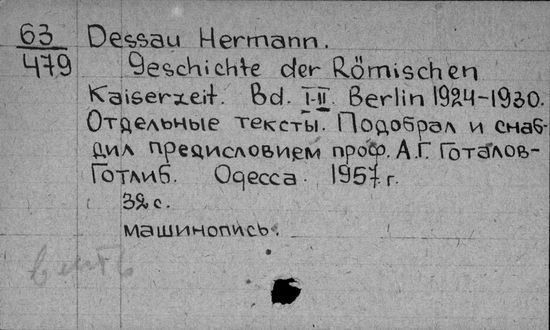 63 Dessau Hermann.
479 Geschichte der Römischen
Kaiserzeit. Bd. I-II. Berlin 1924-1930.
Отдельные тексты. Подобрал и снаб-
дил предисловием проф. А.Г. Готалов-
Готлиб. Одесса. 1957 г.
32 с.
машинопись.